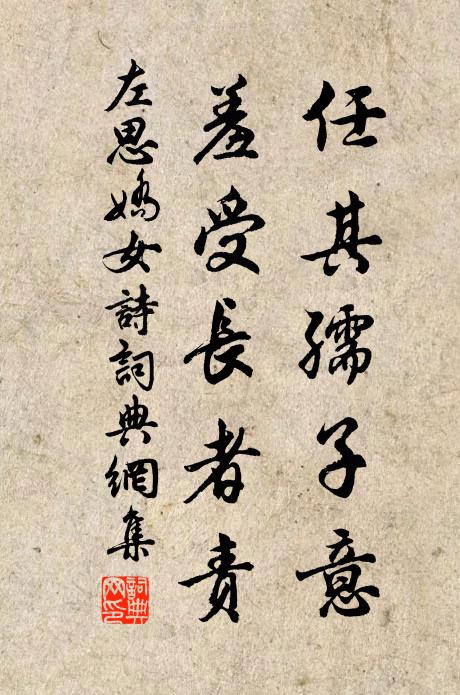 任其孺子意
羞受長者責
左思嬌女詩詞典網集
詞典
网印